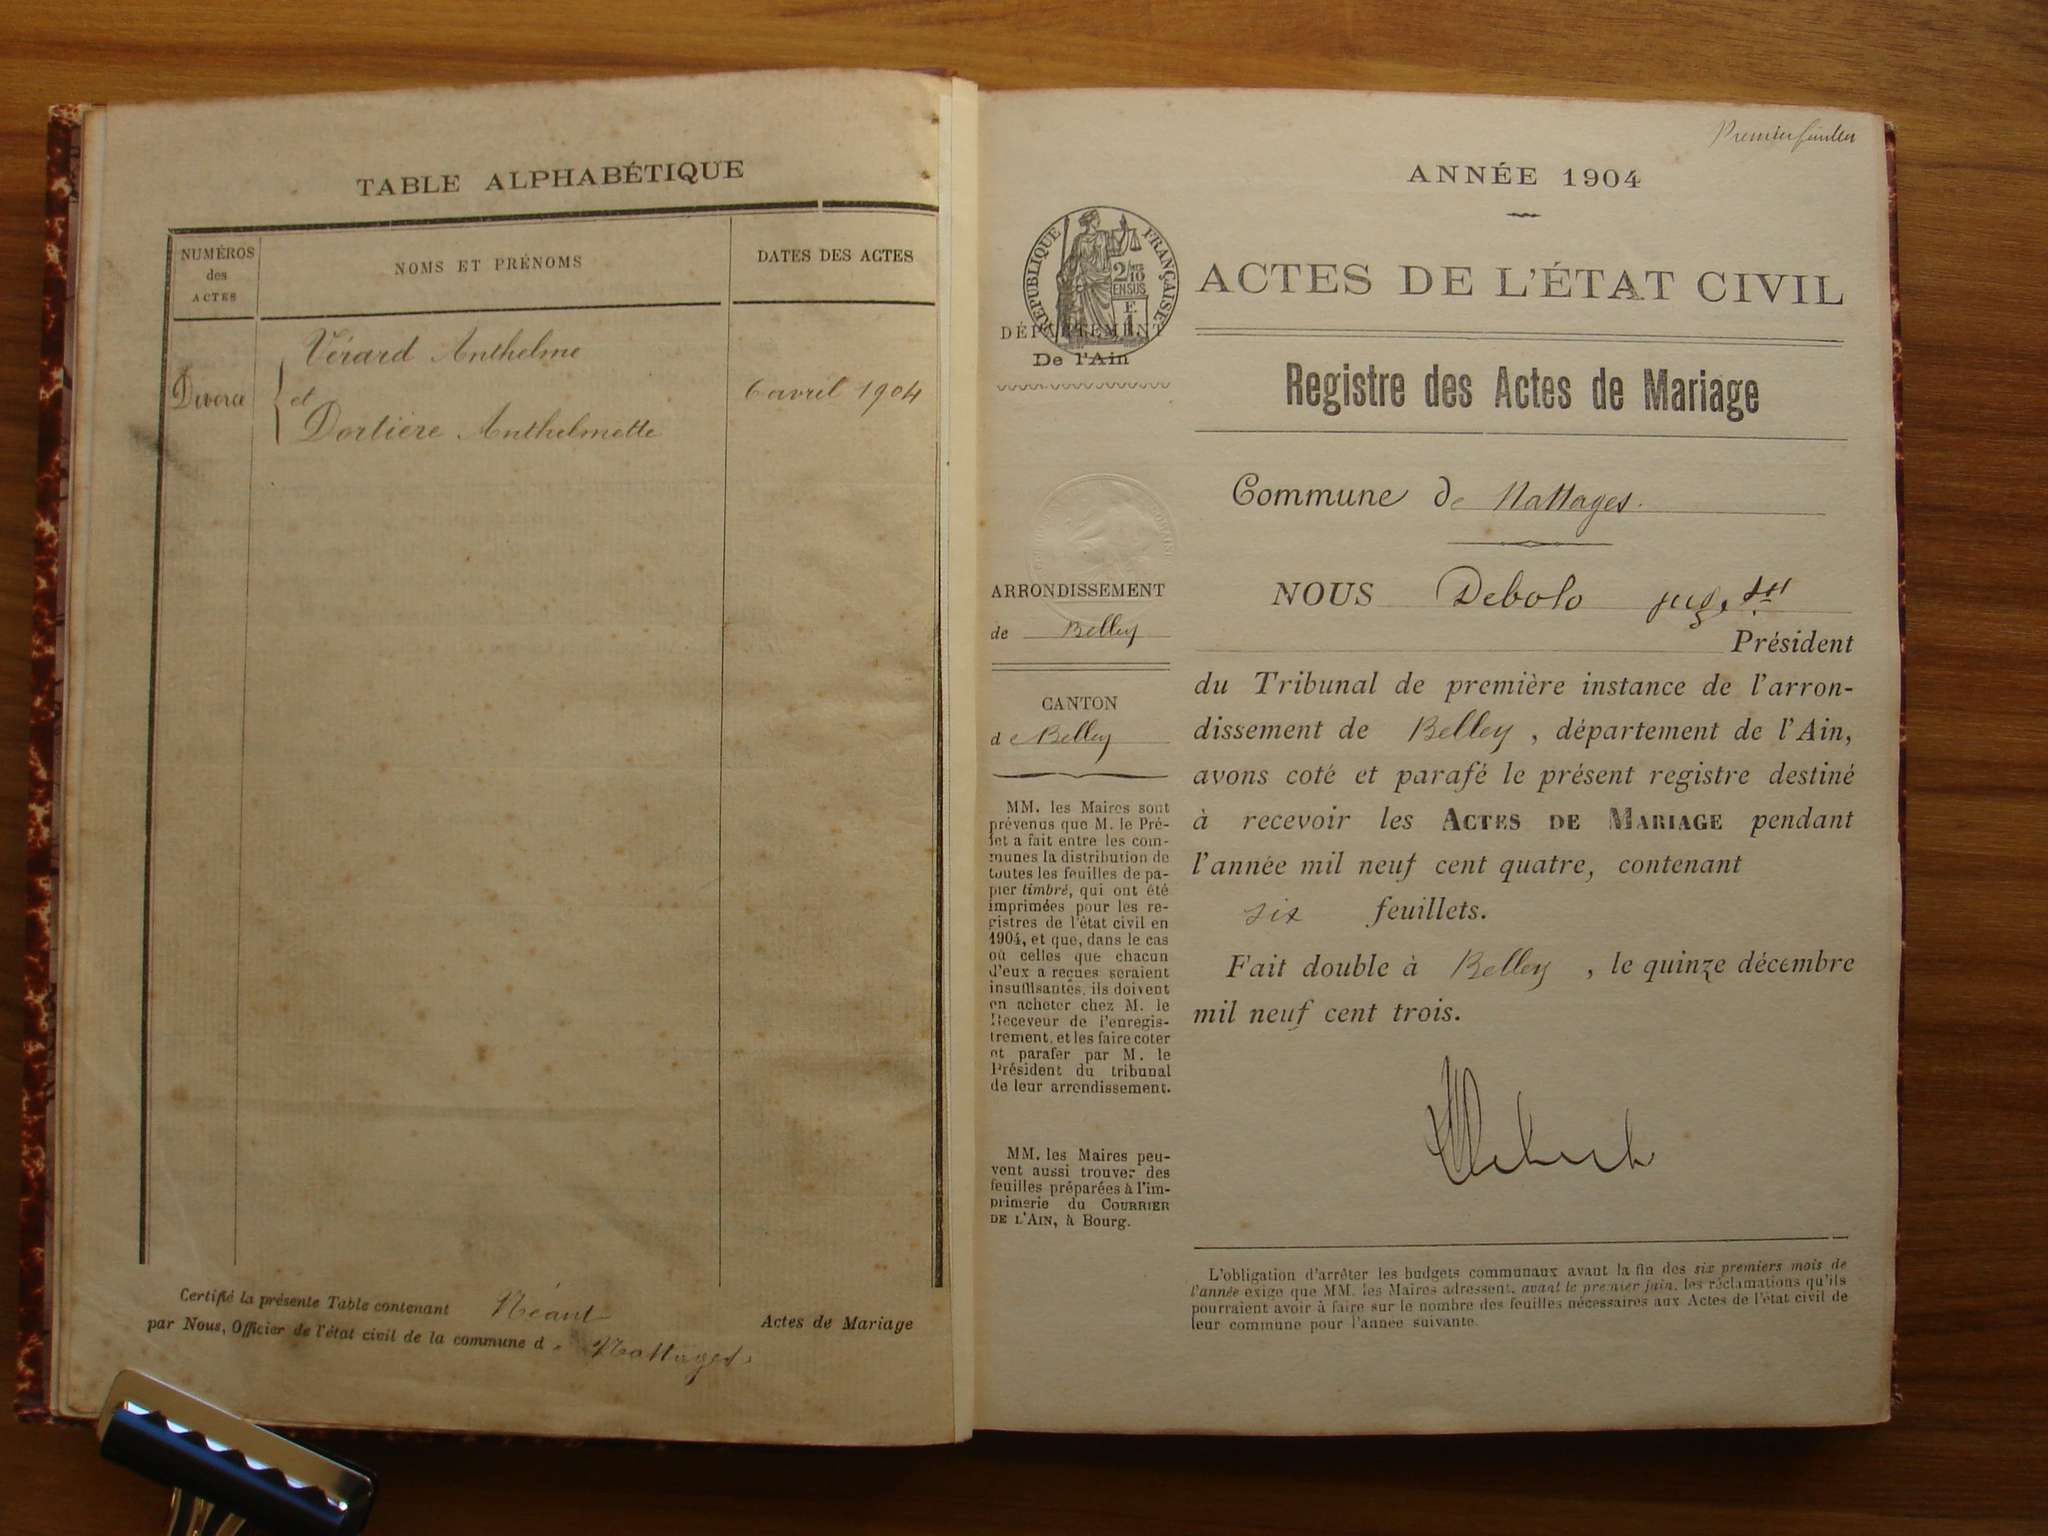 TABLE ALPHABÉTIQUE
NUMÉROS
des
ACTES
NOMS ET PRÉNOMS
DATES DES ACTES
Vérard Anthelme
Divorce
et
6 avril 1904
Dortière Anthelmette
Certifié la présente Table contenant Néant Actes de Mariage
par Nous, Officier de l'état civil de la commune de Nattages.
Premier feuillet
ANNÉE 1904
RÉPUBLIQUE FRANÇAISE
2/10
EN SUS
ACTES DE L'ÉTAT CIVIL
DÉPARTEMENT
De l'Ain
Registre des Actes de Mariage
Commune de Nattages.
ARRONDISSEMENT
de Belley
CANTON
de Belley
MM. les Maires sont
prévenus que M. le Pré-
fet a fait entre les com-
munes la distribution de
toutes les feuilles de pa-
pier timbré, qui ont été
imprimées pour les re-
gistres de l'état civil en
1904, et que, dans le cas
où celles que chacun
d'eux a reçues seraient
insuffisantes, ils doivent
en acheter chez M. le
Receveur de l'enregis-
trement, et les faire coter
et parafer par M. le
Président du tribunal
de leur arrondissement.
MM. les Maires peu-
vent aussi trouver des
feuilles préparées à l'im-
primerie du COURRIER
DE L'AIN, à Bourg.
NOUS Debolo
Président
du Tribunal de première instance de l'arron-
dissement de Belley, département de l'Ain,
avons coté et parafé le présent registre destiné
à recevoir les ACTES DE MARIAGE pendant
l'année mil neuf cent quatre, contenant
six feuillets.
Fait double à Belley, le quinze décembre
mil neuf cent trois.
L'obligation d'arrêter les budgets communaux avant la fin des six premiers mois de
l'année exige que MM. les Maires adressent, avant le premier juin, les réclamations qu'ils
pourraient avoir à faire sur le nombre des feuilles nécessaires aux Actes de l'état civil de
leur commune pour l'année suivante.